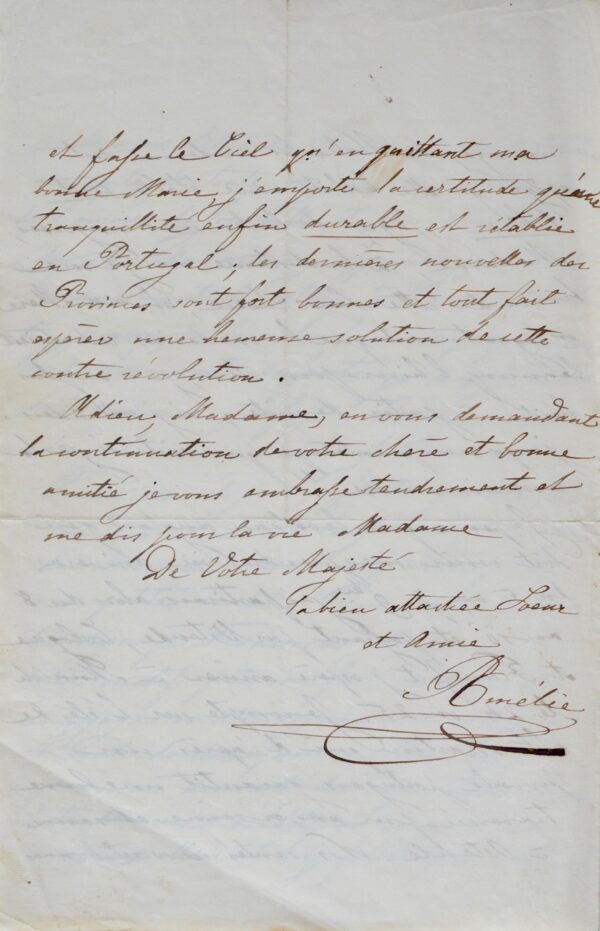 et fasse le Ciel qu'en quittant ma
bonne Marie, j'emporte la certitude qu'une
tranquillité enfin durable est rétablie
en Portugal ; les dernières nouvelles des
Provinces sont fort bonnes et tout fait
espérer une heureuse solution de cette
contre révolution .
Adieu, Madame, en vous demandant
la continuation de votre chère et bonne
amitié je vous embrasse tendrement et
me dis pour la vie Madame
De Votre Majesté
la bien attachée Soeur
et Amie
Amélie